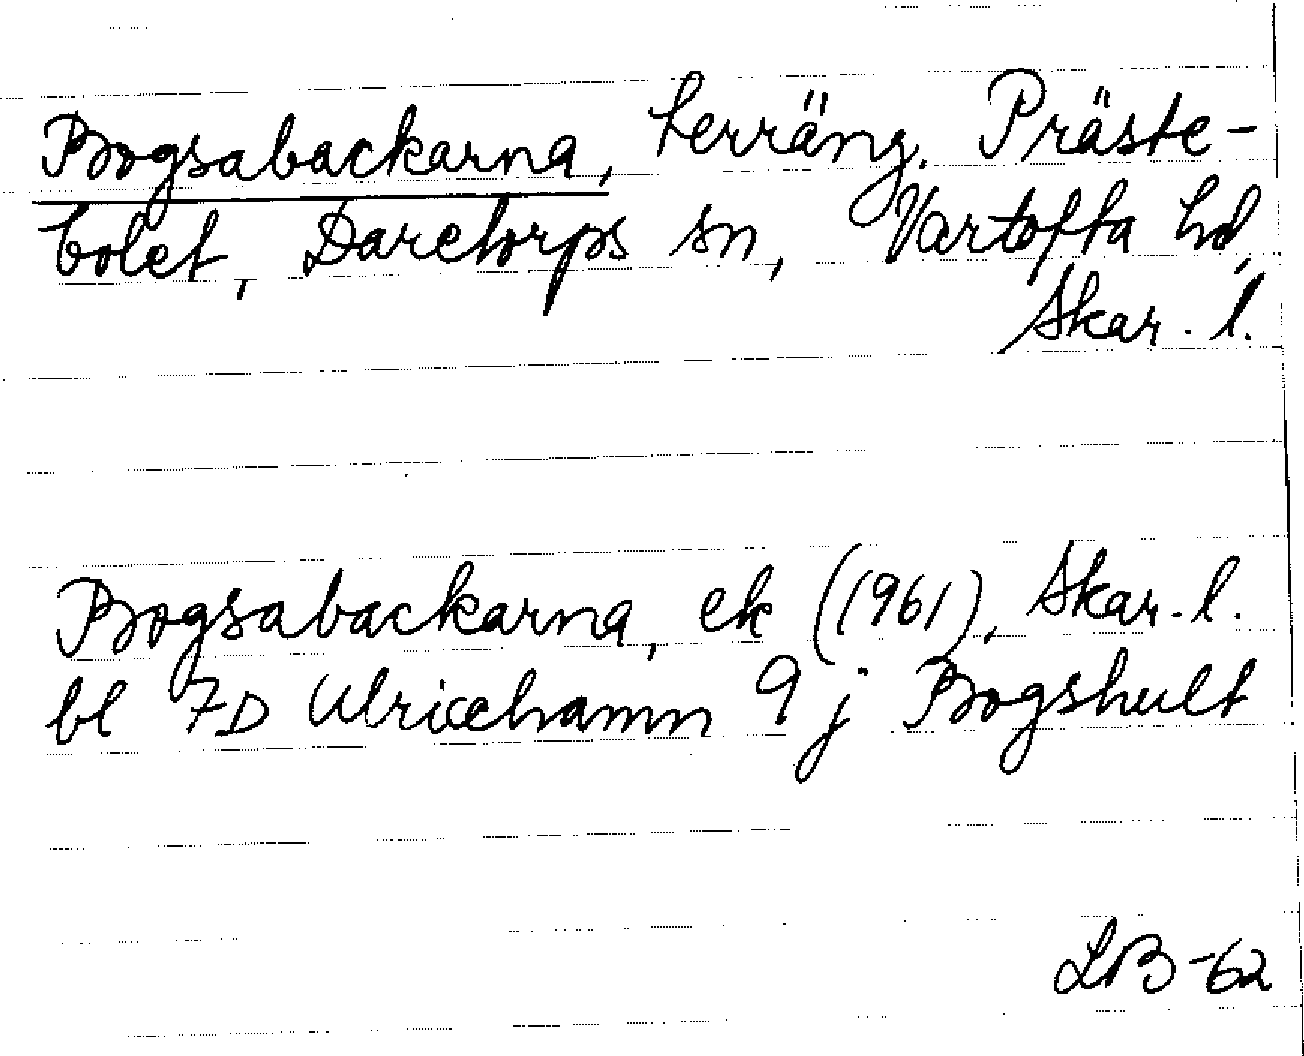 Bogsabackarna, terräng. Präste-
bolet, Daretorps sn, Vartofta hd,
Skar. l.
Bogsabackarna, ek (1961), Skar. l.
bl 7D Ulricehamn 9 j Bogshult
LB-62